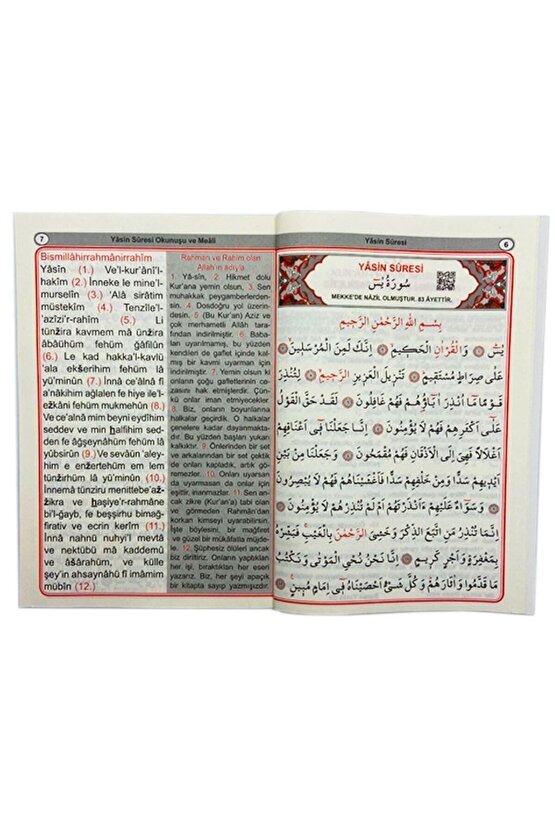 7
Yâsin Sûresi Okunuşu ve Meâli
Bismillâhirrahmânirrahîm
Yâsîn (1.) Ve'l-kur'âni'l-
hakîm (2.) İnneke le mine'l-
murselîn (3.) 'Alâ sirâtim
müstekîm (4.) Tenzîle'l-
'azîzi'r-rahîm (5.) Li
tünžira kavmem mâ ünžira
âbâühüm fehüm ğâfilûn
(6.) Le kad hakka'l-kavlü
'ala ekšerihim fehüm lâ
yü'minûn (7.) İnnâ ce'alnâ fî
a'nâkihim ağlalen fe hiye ile'l-
ežkâni fehüm mukmehûn (8.)
Ve ce'alnâ mim beyni eydîhim
seddev ve min halfihim sed-
den fe âğşeynâhüm fehüm lâ
yübsirûn (9.) Ve sevâün 'aley-
him e enžertehüm em lem
tünžirhüm lâ yü'minûn (10.)
İnnemâ tünziru menittebe'až-
žikra ve haşiye'r-rahmâne
bi'l-ğayb, fe beşşirhu bimağ-
firativ ve ecrin kerîm (11.)
İnnâ nahnü nuhyi'l mevtâ
ve nektübü mâ kaddemû
ve âšârahüm, ve külle
şey'in ahsaynâhü fî imâmim
mübîn (12.)
Rahmân ve Rahîm olan
Allah'ın adıyla
1. Yâ-sîn, 2. Hikmet dolu
Kur'ana yemin olsun, 3. Sen
muhakkak peygamberlerden-
sin. 4. Dosdoğru yol üzerin-
desin. 5. (Bu Kur'an) Aziz ve
çok merhametli Allah tara-
fından indirilmiştir. 6. Baba-
ları uyarılmamış, bu yüzden
kendileri de gaflet içinde kal-
mış bir kavmi uyarman için
indirilmiştir. 7. Yemin olsun ki
onların çoğu gafletlerinin ce-
zasını hak etmişlerdir. Çün-
kü onlar iman etmiyecekler.
8. Biz, onların boyunlarına
halkalar geçirdik. O halkalar
çenelere kadar dayanmakta-
dır. Bu yüzden başları yukarı
kalkıktır. 9. Önlerinden bir set
ve arkalarından bir set çektik
de onları kapladık, artık gö-
remezler. 10. Onları uyarsan
da uyarmasan da onlar için
eşittir, inanmazlar. 11. Sen an-
cak zikre (Kur'an'a) tabi olan
ve görmeden Rahmân'dan
korkan kimseyi uyarabilirsin.
İşte böylesini, bir mağfiret
ve güzel bir mükâfatla müjde-
le. 12. Şüphesiz ölüleri ancak
biz diriltiriz. Onların yaptıkları
her işi, bıraktıkları her eseri
yazarız. Biz, her şeyi apaçık
bir kitapta sayıp yazmışızdır.
Yâsîn Sûresi
6
YÂSİN SÛRESİ
سُورَةُ يٰسٓ
MEKKE'DE NÂZİL OLMUŞTUR. 83 ÂYETTİR.
بِسْمِ اللّٰهِ الرَّحْمٰنِ الرَّحِيمِ
يٰسٓ وَالْقُرْاٰنِ الْحَكِيمِ اِنَّكَ لَمِنَ الْمُرْسَلِينَ
عَلٰى صِرَاطٍ مُسْتَقِيمٍ تَنْزِيلَ الْعَزِيزِ الرَّحِيمِ لِتُنْذِرَ
قَوْمًا مَٓا اُنْذِرَ اٰبَٓاؤُهُمْ فَهُمْ غَافِلُونَ لَقَدْ حَقَّ الْقَوْلُ
عَلٰٓى اَكْثَرِهِمْ فَهُمْ لَا يُؤْمِنُونَ اِنَّا جَعَلْنَا فِٓى اَعْنَاقِهِمْ
اَغْلَالًا فَهِىَ اِلَى الْاَذْقَانِ فَهُمْ مُقْمَحُونَ وَجَعَلْنَا مِنْ بَيْنِ
اَيْدِيهِمْ سَدًّا وَمِنْ خَلْفِهِمْ سَدًّا فَاَغْشَيْنَاهُمْ فَهُمْ لَا يُبْصِرُونَ
وَسَوَٓاءٌ عَلَيْهِمْ ءَاَنْذَرْتَهُمْ اَمْ لَمْ تُنْذِرْهُمْ لَا يُؤْمِنُونَ
اِنَّمَا تُنْذِرُ مَنِ اتَّبَعَ الذِّكْرَ وَخَشِىَ الرَّحْمٰنَ بِالْغَيْبِ فَبَشِّرْهُ
بِمَغْفِرَةٍ وَاَجْرٍ كَرِيمٍ اِنَّا نَحْنُ نُحْىِ الْمَوْتٰى وَنَكْتُبُ
مَا قَدَّمُوا وَاٰثَارَهُمْ وَكُلَّ شَىْءٍ اَحْصَيْنَاهُ فِٓى اِمَامٍ مُبِينٍ